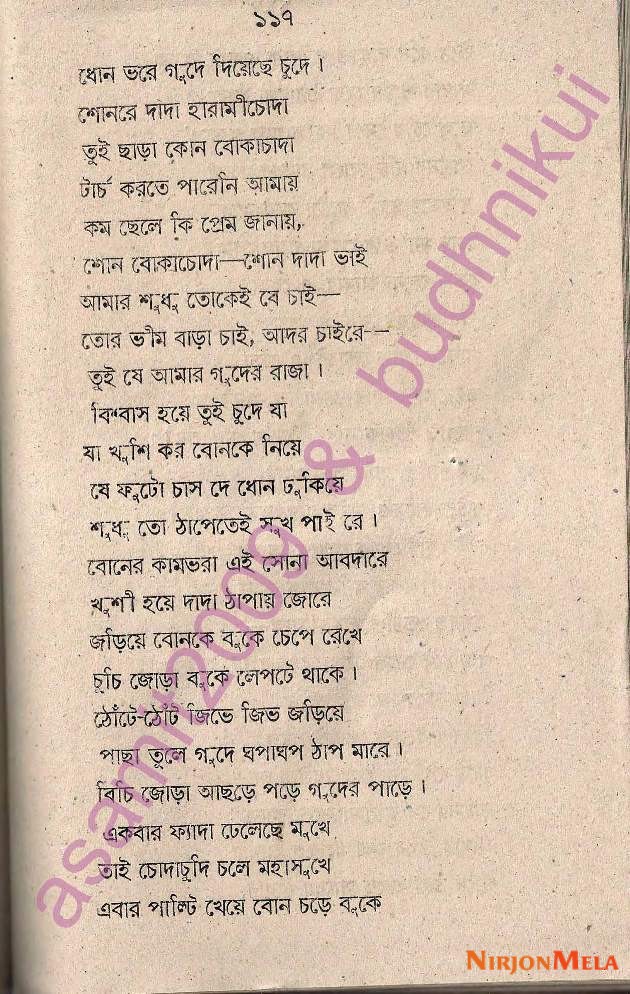 ১১৭
ধোন ভরে গুদে দিয়েছে চুদে।
শোনরে দাদা হারামীচোদা
তুই ছাড়া কোন বোকাচাদা
টার্চ করতে পারেনি আমায়
কম ছেলে কি প্রেম জানায়,
শোন বোকাচোদা—শোন দাদা ভাই
আমার শুধু তোকেই বে চাই—
তোর ভীম বাড়া চাই, আদর চাইরে—
তুই যে আমার গুদের রাজা।
বিশ্বাস হয়ে তুই চুদে যা
যা খুশি কর বোনকে নিয়ে
যে ফুটো চাস দে ধোন ঢুকিয়ে
শুধু তো ঠাপেতেই সুখ পাই রে।
বোনের কামভরা এই সোনা আবদারে
খুশী হয়ে দাদা ঠাপায় জোরে
জড়িয়ে বোনকে বুকে চেপে রেখে
চুচি জোড়া বুকে লেপটে থাকে।
ঠোঁটে-ঠোঁট জিভে জিভ জড়িয়ে
পাছা তুলে গুদে ঘপাঘপ ঠাপ মারে।
বিচি জোড়া আছড়ে পড়ে গুদের পাড়ে।
একবার ফ্যাদা ঢেলেছে মুখে
তাই চোদাচুদি চলে মহাসুখে
এবার পাল্টি খেয়ে বোন চড়ে বুকে
asamit2009 & budhnikui
NIRJONMELA